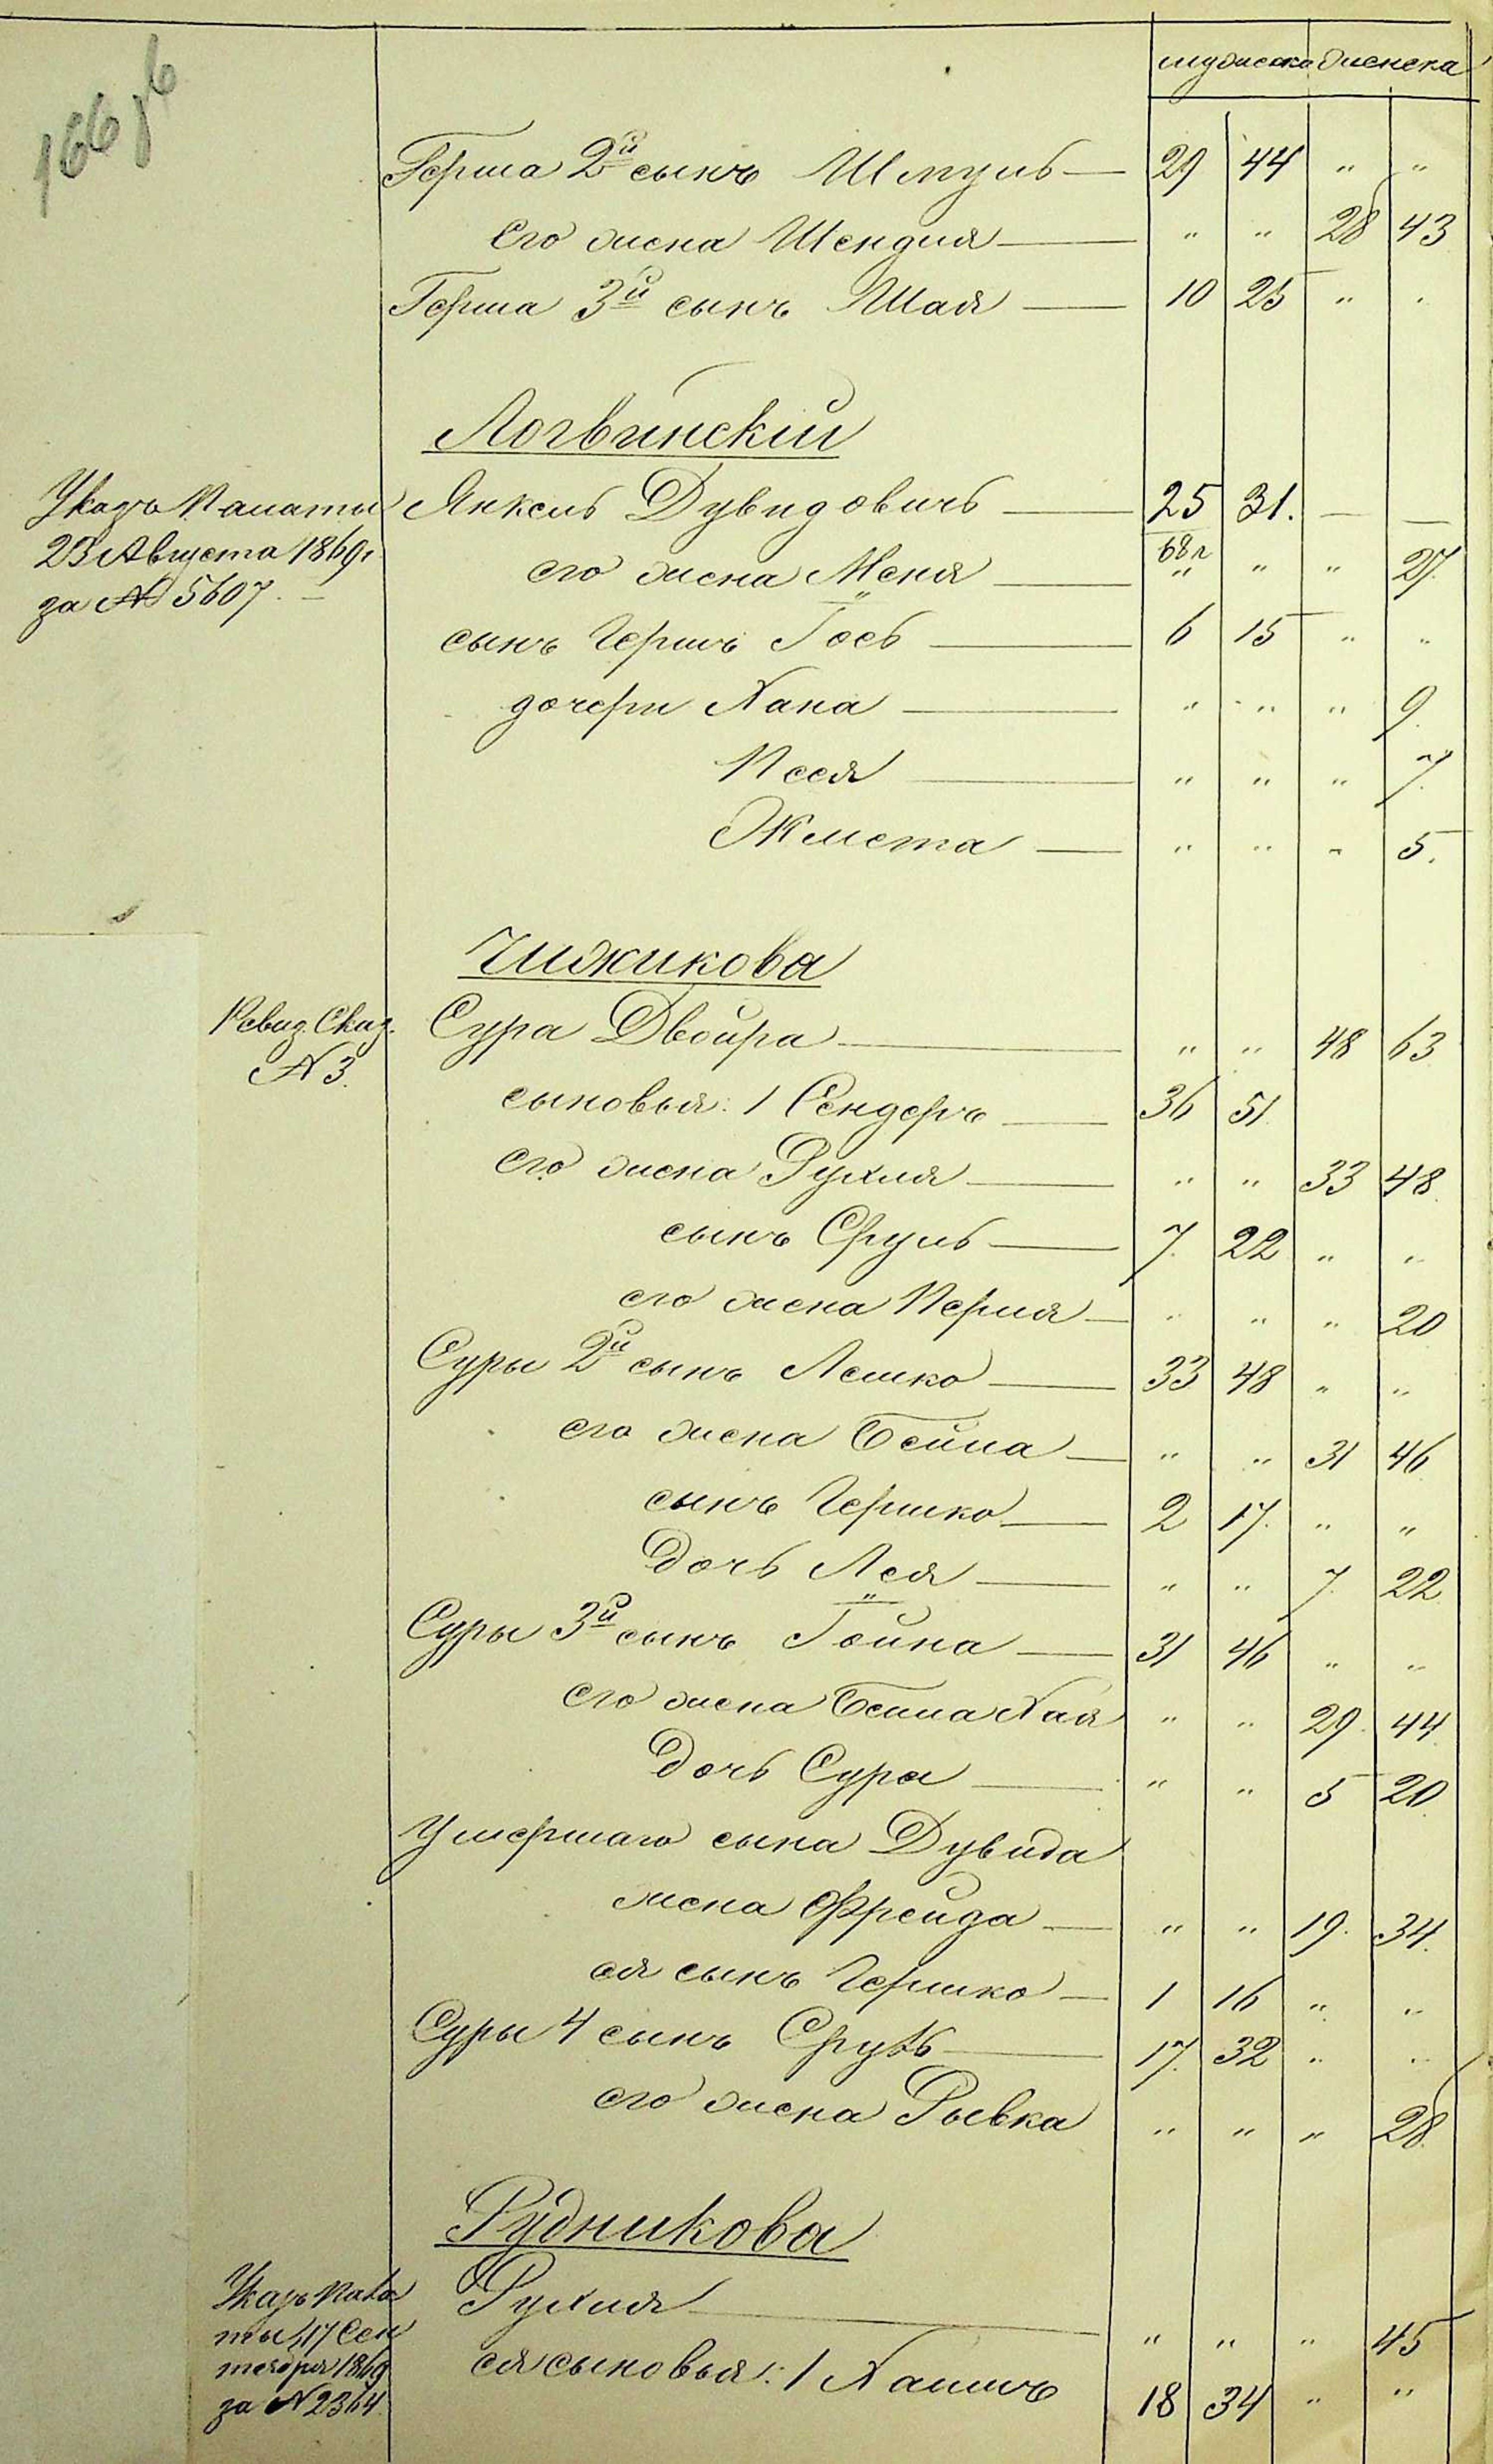 166 об
мужеска женска
Герша 2й сынъ Шмуль — 29 44 " "
Его жена Шендля — " " 28 43
Герша 3й сынъ Шая — 10 25 " "
Логвинскій
Указъ Палаты
23 Августа 1869г
за № 5607. —
Янкель Дувидовичъ — 25 31. — —
68 г
его жена Меня — " " " 27.
сынъ Гершъ Іосъ — 6 15 " "
дочери Хана — " " " 9.
Песя — " " " 7.
Жмета — " " " 5.
Чижикова
Ревиз. Сказ.
№ 3.
Сура Двойра — " " 48 63
сыновья: 1 Сендеръ — 36 51
Его жена Рухля — " " 33 48
сынъ Сруль — 7. 22 " "
его жена Перля — " " " 20
Суры 2й сынъ Лейко — 33 48 " "
его жена Бейла — " " 31 46
сынъ Гершко — 2 17. " "
Дочь Лея — " " 7. 22
Суры 3й сынъ Іойна — 31 46 " "
Его жена Бейла Хая " " 29. 44
Дочь Сура — " " 5 20
Умершаго сына Дувида
жена Фрейда — " " 19. 34.
ея сынъ Гершко — 1 16 " "
Суры 4 сынъ Сруль — 17. 32 " "
его жена Рывка " " " 28
Рудникова
Указъ Пала
ты 17 Сен
тября 1869
за № 2364.
Рухля — " " " 45
ея сыновья: 1 Хаимъ 18 34 " "